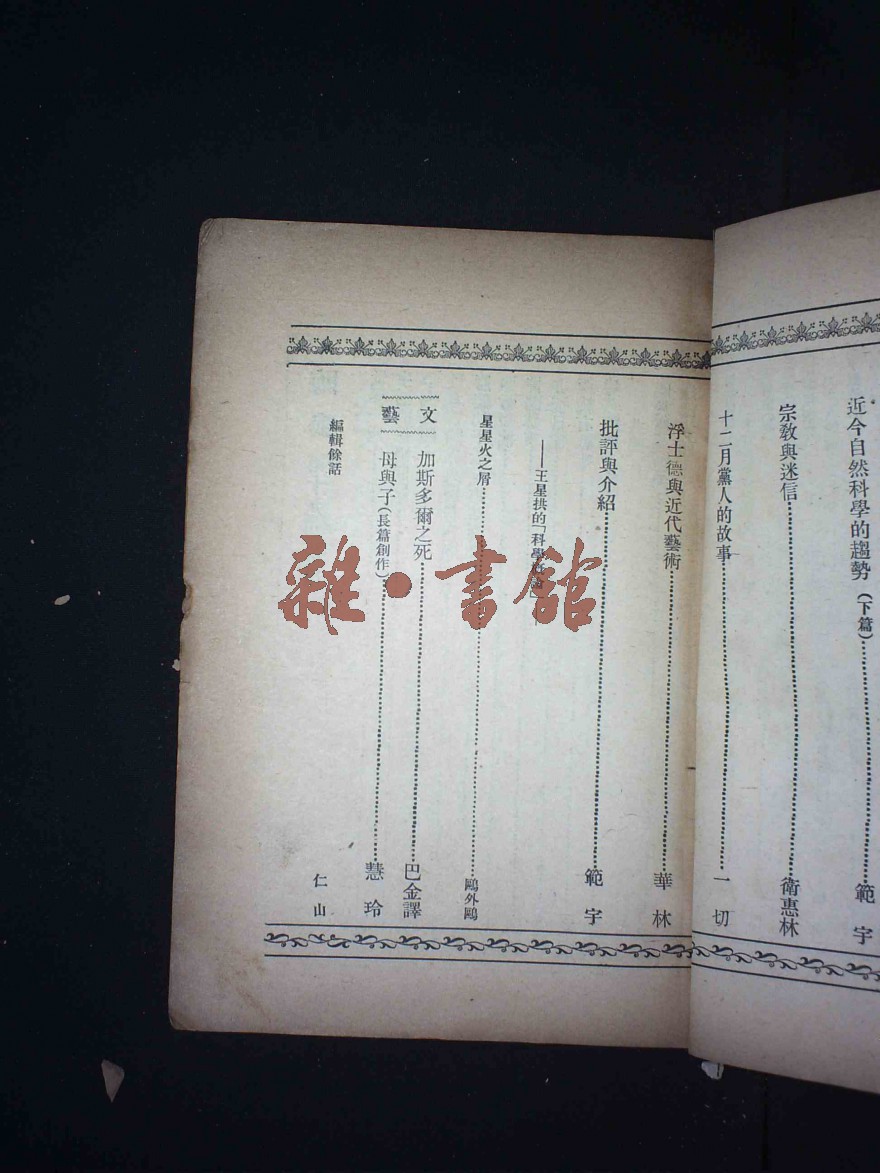 近今自然科學的趨勢（下篇）………範宇
宗敎與迷信………衛惠林
十二月黨人的故事………一切
浮士德與近代藝術………華林
批評與介紹………範宇
——王星拱的「科學
星星火之屑………鷗外鷗
文藝
加斯多爾之死………巴金譯
母與子（長篇創作）………慧玲
編輯餘話 仁山
雜·書館